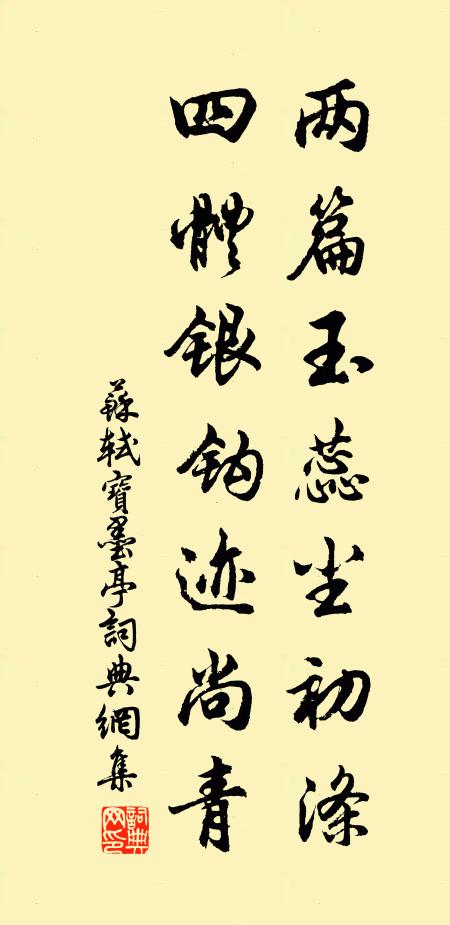 两篇玉蕊尘初涤
四體银钩迹尚青
蘇軾寶墨亭詞典網集
詞典網印